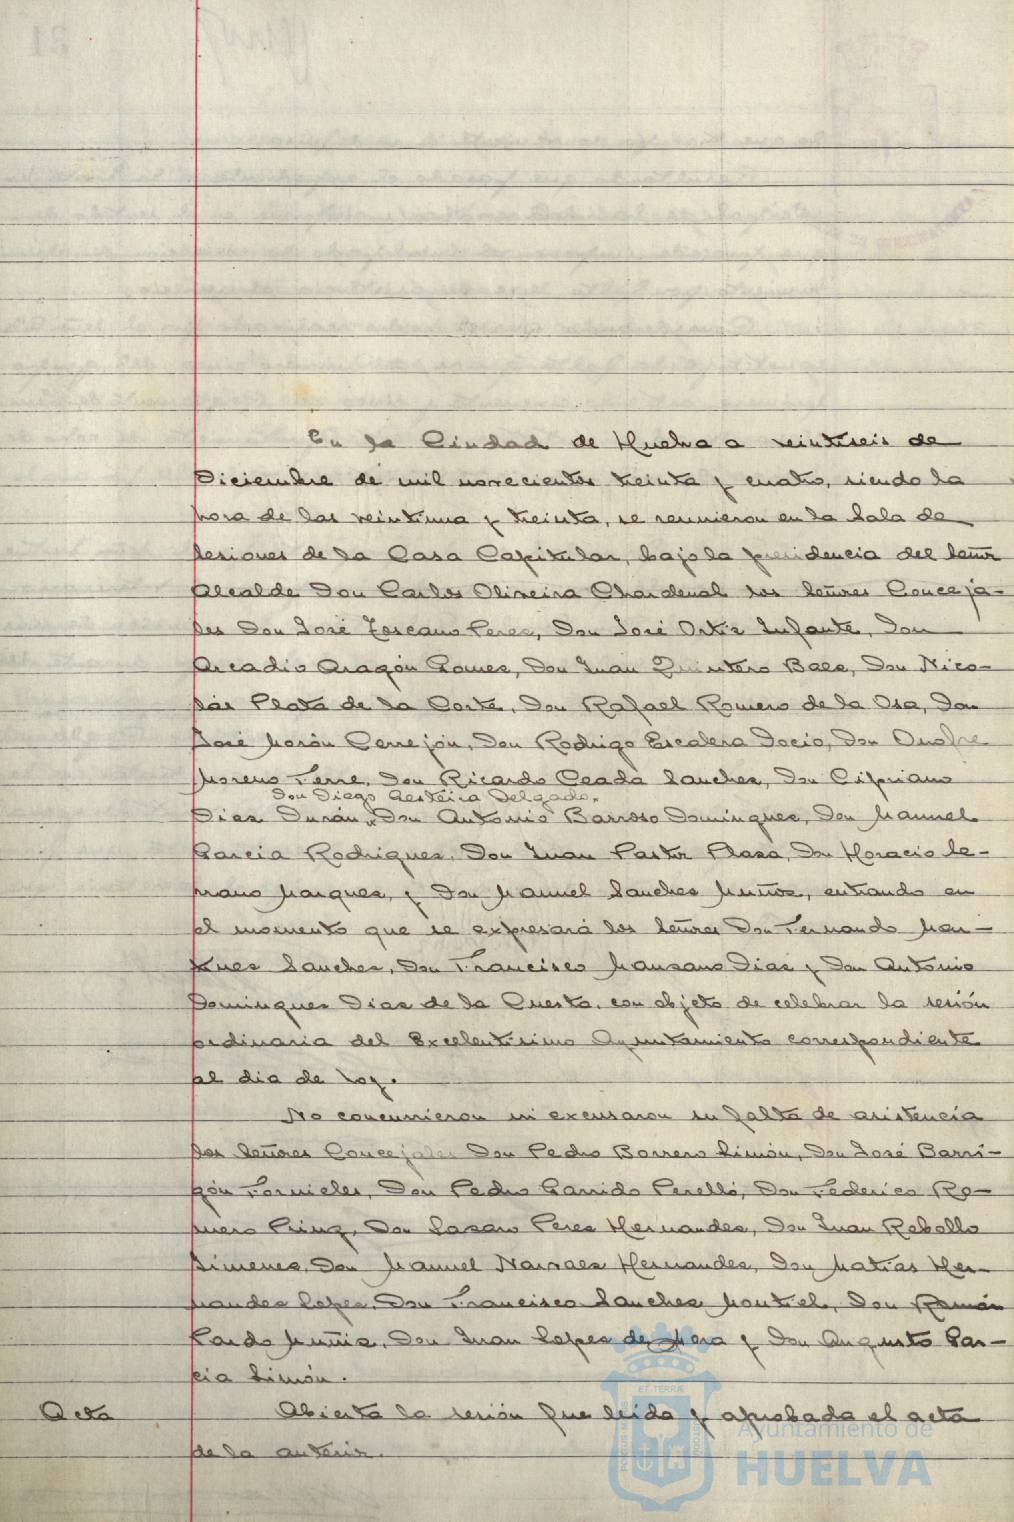 En la Ciudad de Huelva a veintiseis de
Diciembre de mil novecientos treinta y cuatro, siendo la
hora de las veintiuna y treinta, se reunieron en la Sala de
Sesiones de la Casa Capitular, bajo la presidencia del Señor
Alcalde Don Carlos Oliveira Chardenal los Señores Conceja-
les Don José Toscano Perez, Don José Ortiz Infante, Don
Arcadio Aragón Gomez, Don Juan Quintero Baez, Don Nico-
lás Plata de la Corte, Don Rafael Romero de la Osa, Don
José Morón Cerrejón, Don Rodrigo Escalera Docio, Don Onofre
Moreno Ferre, Don Ricardo Ceada Sanchez, Don Cipriano
Don Diego Gesteira Delgado,
Diaz Durán, Don Antonio Barroso Dominguez, Don Manuel
Garcia Rodriguez, Don Juan Pastor Plaza, Don Horacio Se-
rrano Marquez, y Don Manuel Sanchez Muñoz, entrando en
el momento que se expresará los Señores Don Fernando Mar-
quez Sanchez, Don Francisco Manzano Diaz y Don Antonio
Dominguez Diaz de la Cuesta, con objeto de celebrar la sesión
ordinaria del Excelentisimo Ayuntamiento correspondiente
al dia de hoy.
No concurrieron ni excusaron su falta de asistencia
los Señores Concejales Don Pedro Borrero Limón, Don José Barri-
gón Fornieles, Don Pedro Garrido Perelló, Don Federico Ro-
mero Prinz, Don Lazaro Perez Hernandez, Don Juan Rebollo
Jimenez, Don Manuel Narvaez Hernandez, Don Matias Her-
nandez Lopez, Don Francisco Sanchez Montiel, Don Ramón
Pardo Muñiz, Don Juan Lopez de Mera y Don Augusto Gar-
cia Limón.
Acta Abierta la sesión fue leida y aprobada el acta
de la anterior.
Ayuntamiento de
HUELVA